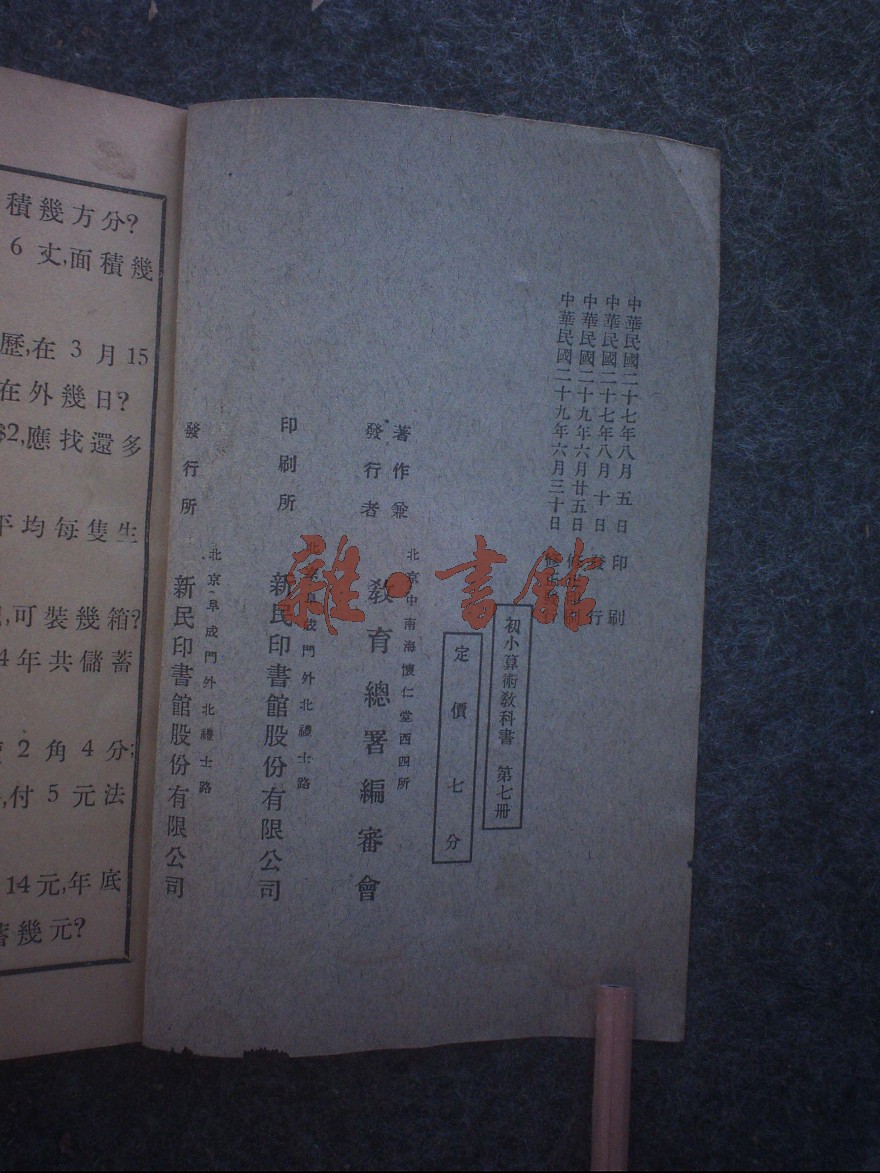 積幾方分?
6丈,面積幾
歷,在3月15
在外幾日?
$2,應找還多
平均每隻生
,可裝幾箱?
4年共儲蓄
2角4分;
,付5元法
14元,年底
蓄幾元?
中華民國二十七年八月五日印刷
中華民國二十七年八月十日發行
中華民國二十九年六月廿五日
中華民國二十九年六月三十日
初小算術敎科書 第七册
定價七分
著作兼
發行者
北京中南海懷仁堂西四所
敎育總署編審會
印刷所
成門外北禮士路
新民印書館股份有限公司
發行所
北京阜成門外北禮士路
新民印書館股份有限公司
雜·書館